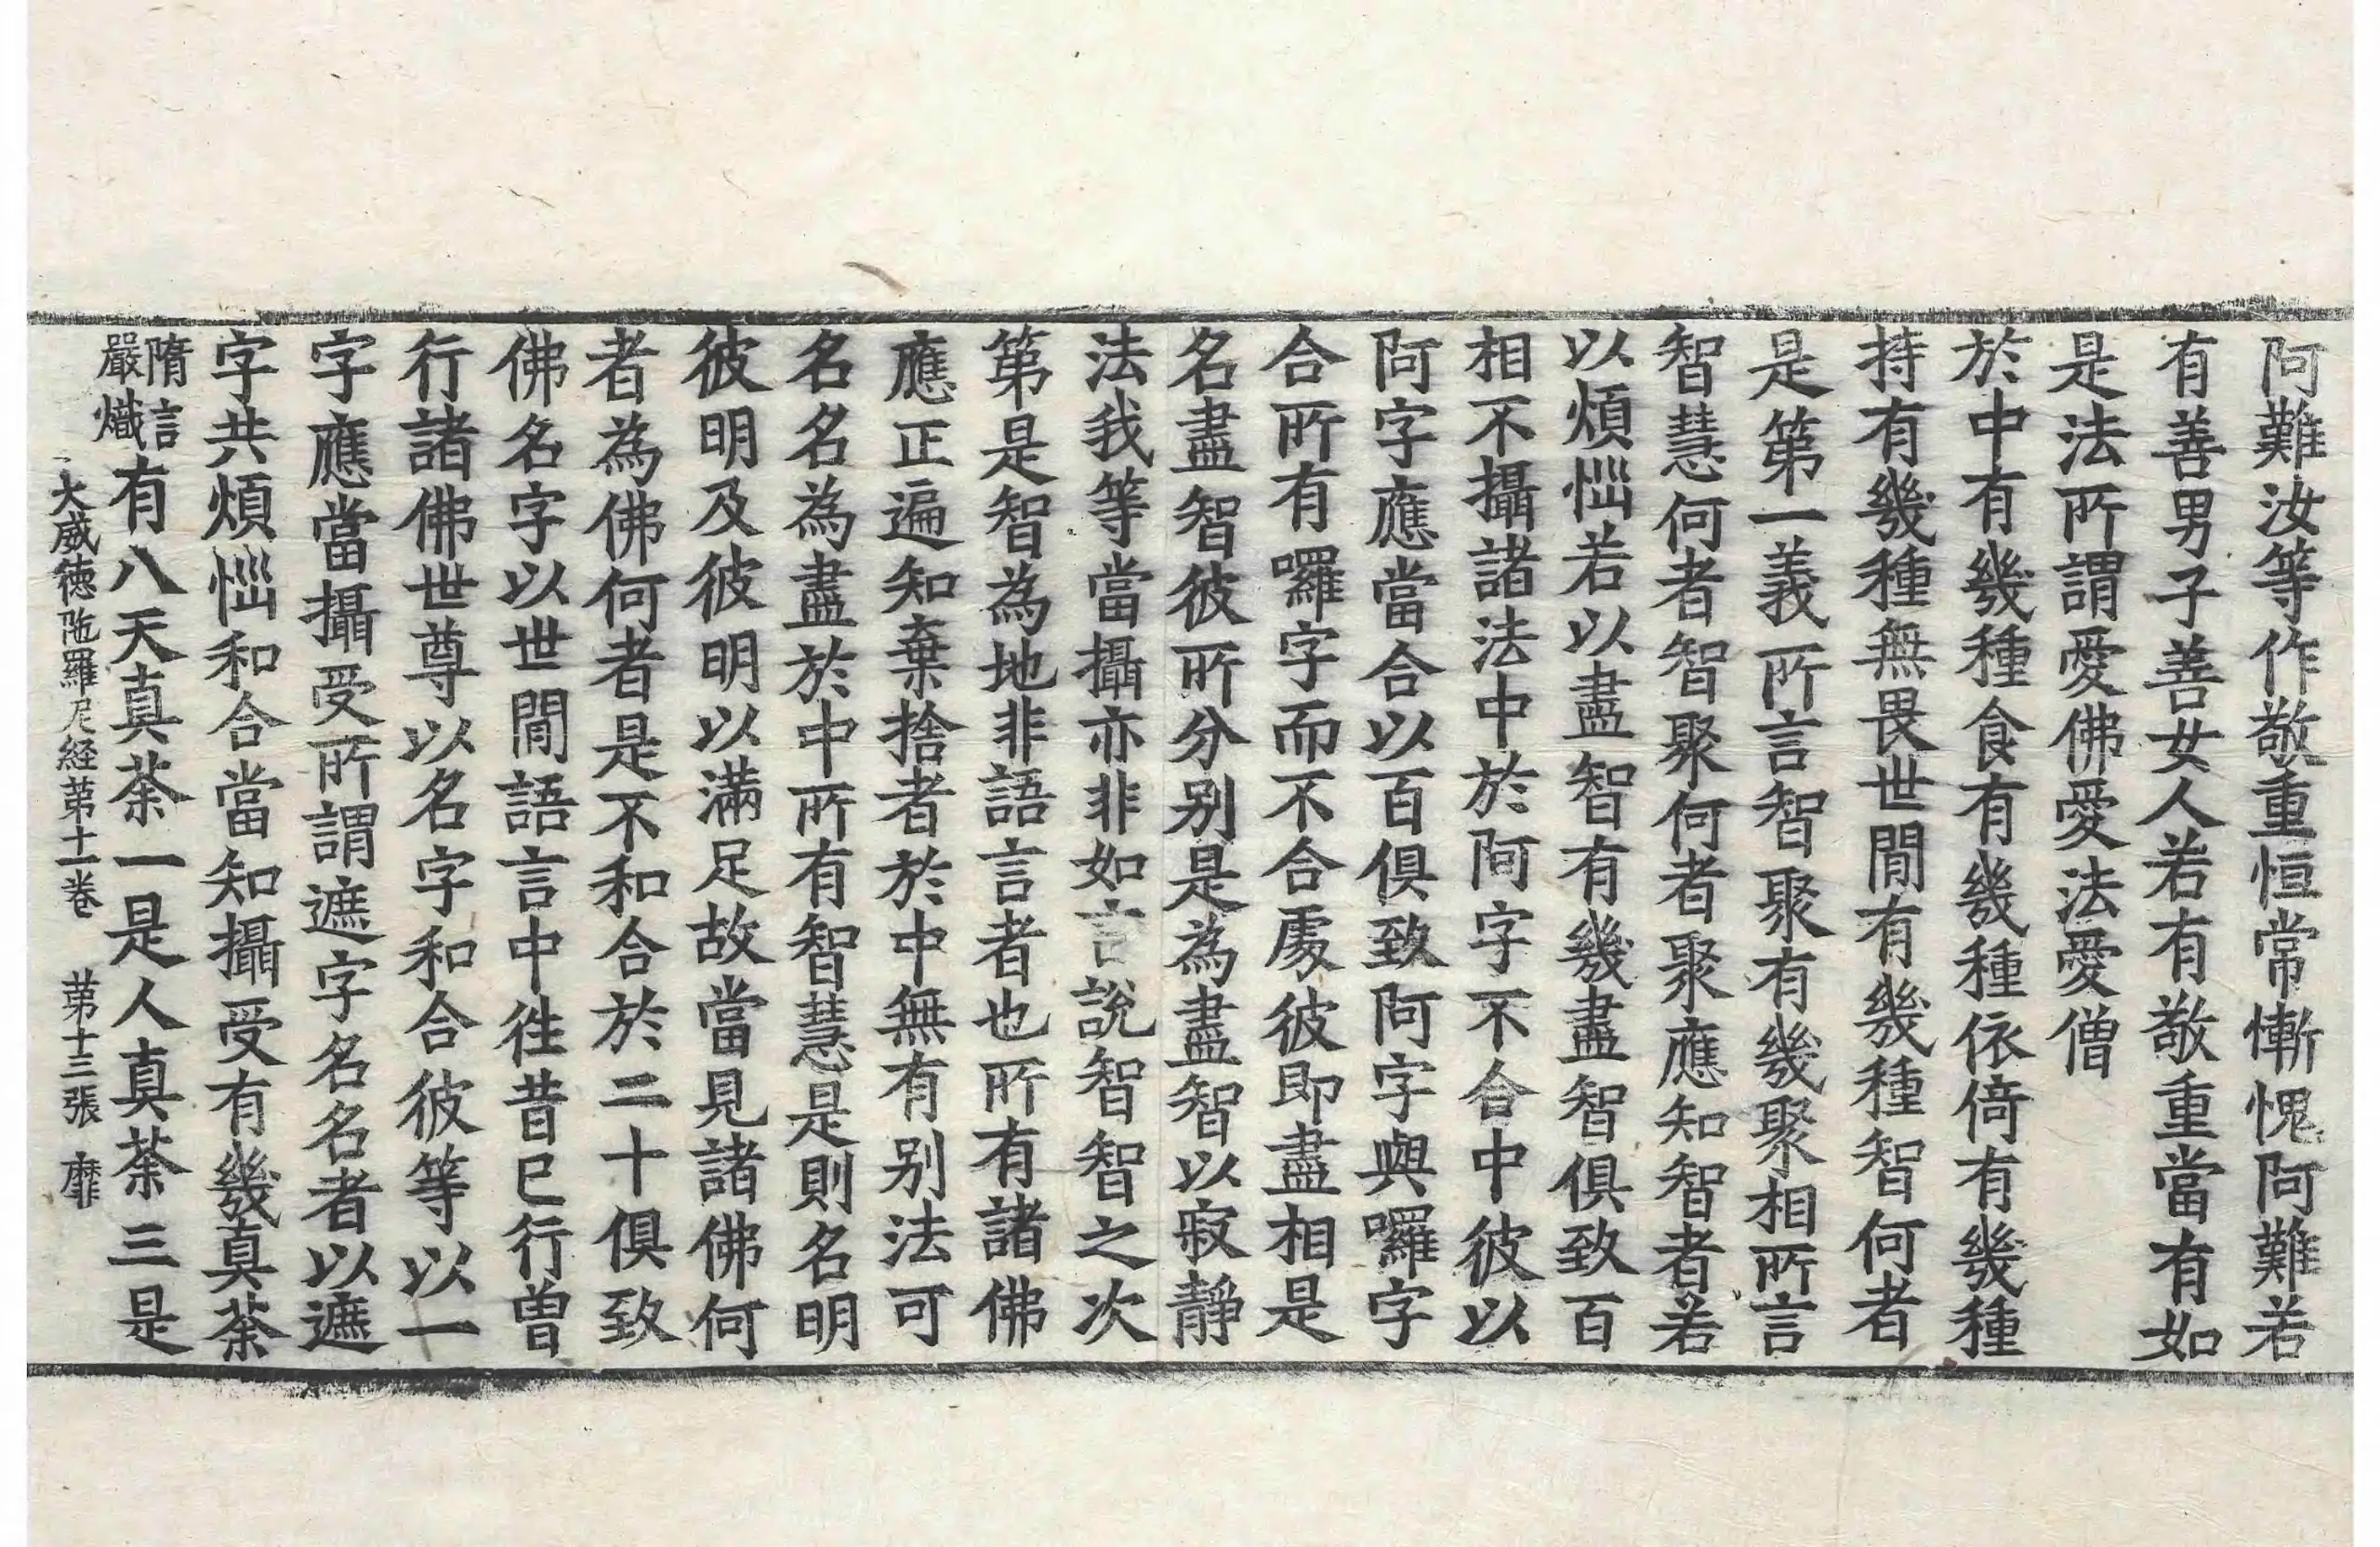 阿難汝等作敬重恒常慚愧阿難若
有善男子善女人若有敬重當有如
是法所謂愛佛愛法愛僧
於中有幾種食有幾種依倚有幾種
持有幾種無畏世間有幾種智何者
是第一義所言智聚有幾聚相所言
智慧何者智聚何者聚應知智者若
以煩惱若以盡智有幾盡智俱致百
相不攝諸法中於阿字不合中彼以
阿字應當合以百俱致阿字與囉字
合所有囉字而不合處彼即盡相是
名盡智彼所分别是為盡智以寂靜
法我等當攝亦非如言說智智之次
第是智為地非語言者也所有諸佛
應正遍知棄捨者於中無有别法可
名名為盡於中所有智慧是則名明
彼明及彼明以滿足故當見諸佛何
者為佛何者是不和合於二十俱致
佛名字以世間語言中徃昔巳行曽
行諸佛世尊以名字和合彼等以一
字應當攝受所謂遮字名名者以遮
字共煩惱和合當知攝受有幾真荼
隋言嚴熾有八天真荼一是人真荼三是
大威徳陁羅尼経苐十一卷 苐十三張 靡